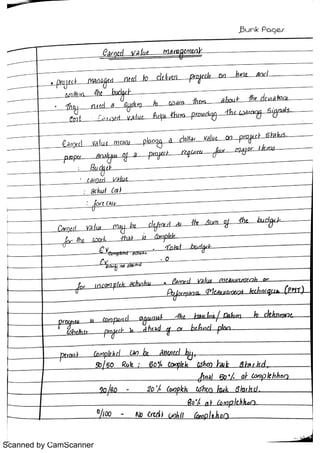 Bunk Pages
Earned value management
• project managers need to deliver projects on time and
within the budget
• They need a system to warn them about the deviations
Cost Earned value helps them providing the warning signals.
Earned value means placing a dollar value on project status.
proper analysis of a project requires four major items
: Budget
: earned value
: actual cost
: forecast
Earned value may be defined as the sum of the budget
for the work that is complete.
EV completed activities = Total budget.
EV activity not started = 0
for incomplete activities • Earned value measurements or
Performance Measurement techniques (PMT)
progress is compared against the baseline/Datum to determine
whether project is ahead of or behind plan
percent completed can be assessed by,
50/50 Rule : 50% complete when task started.
final 50% at completion
20/80 - 20% complete when task started.
80% at completion.
0/100 - No credit until completion
Scanned by CamScanner